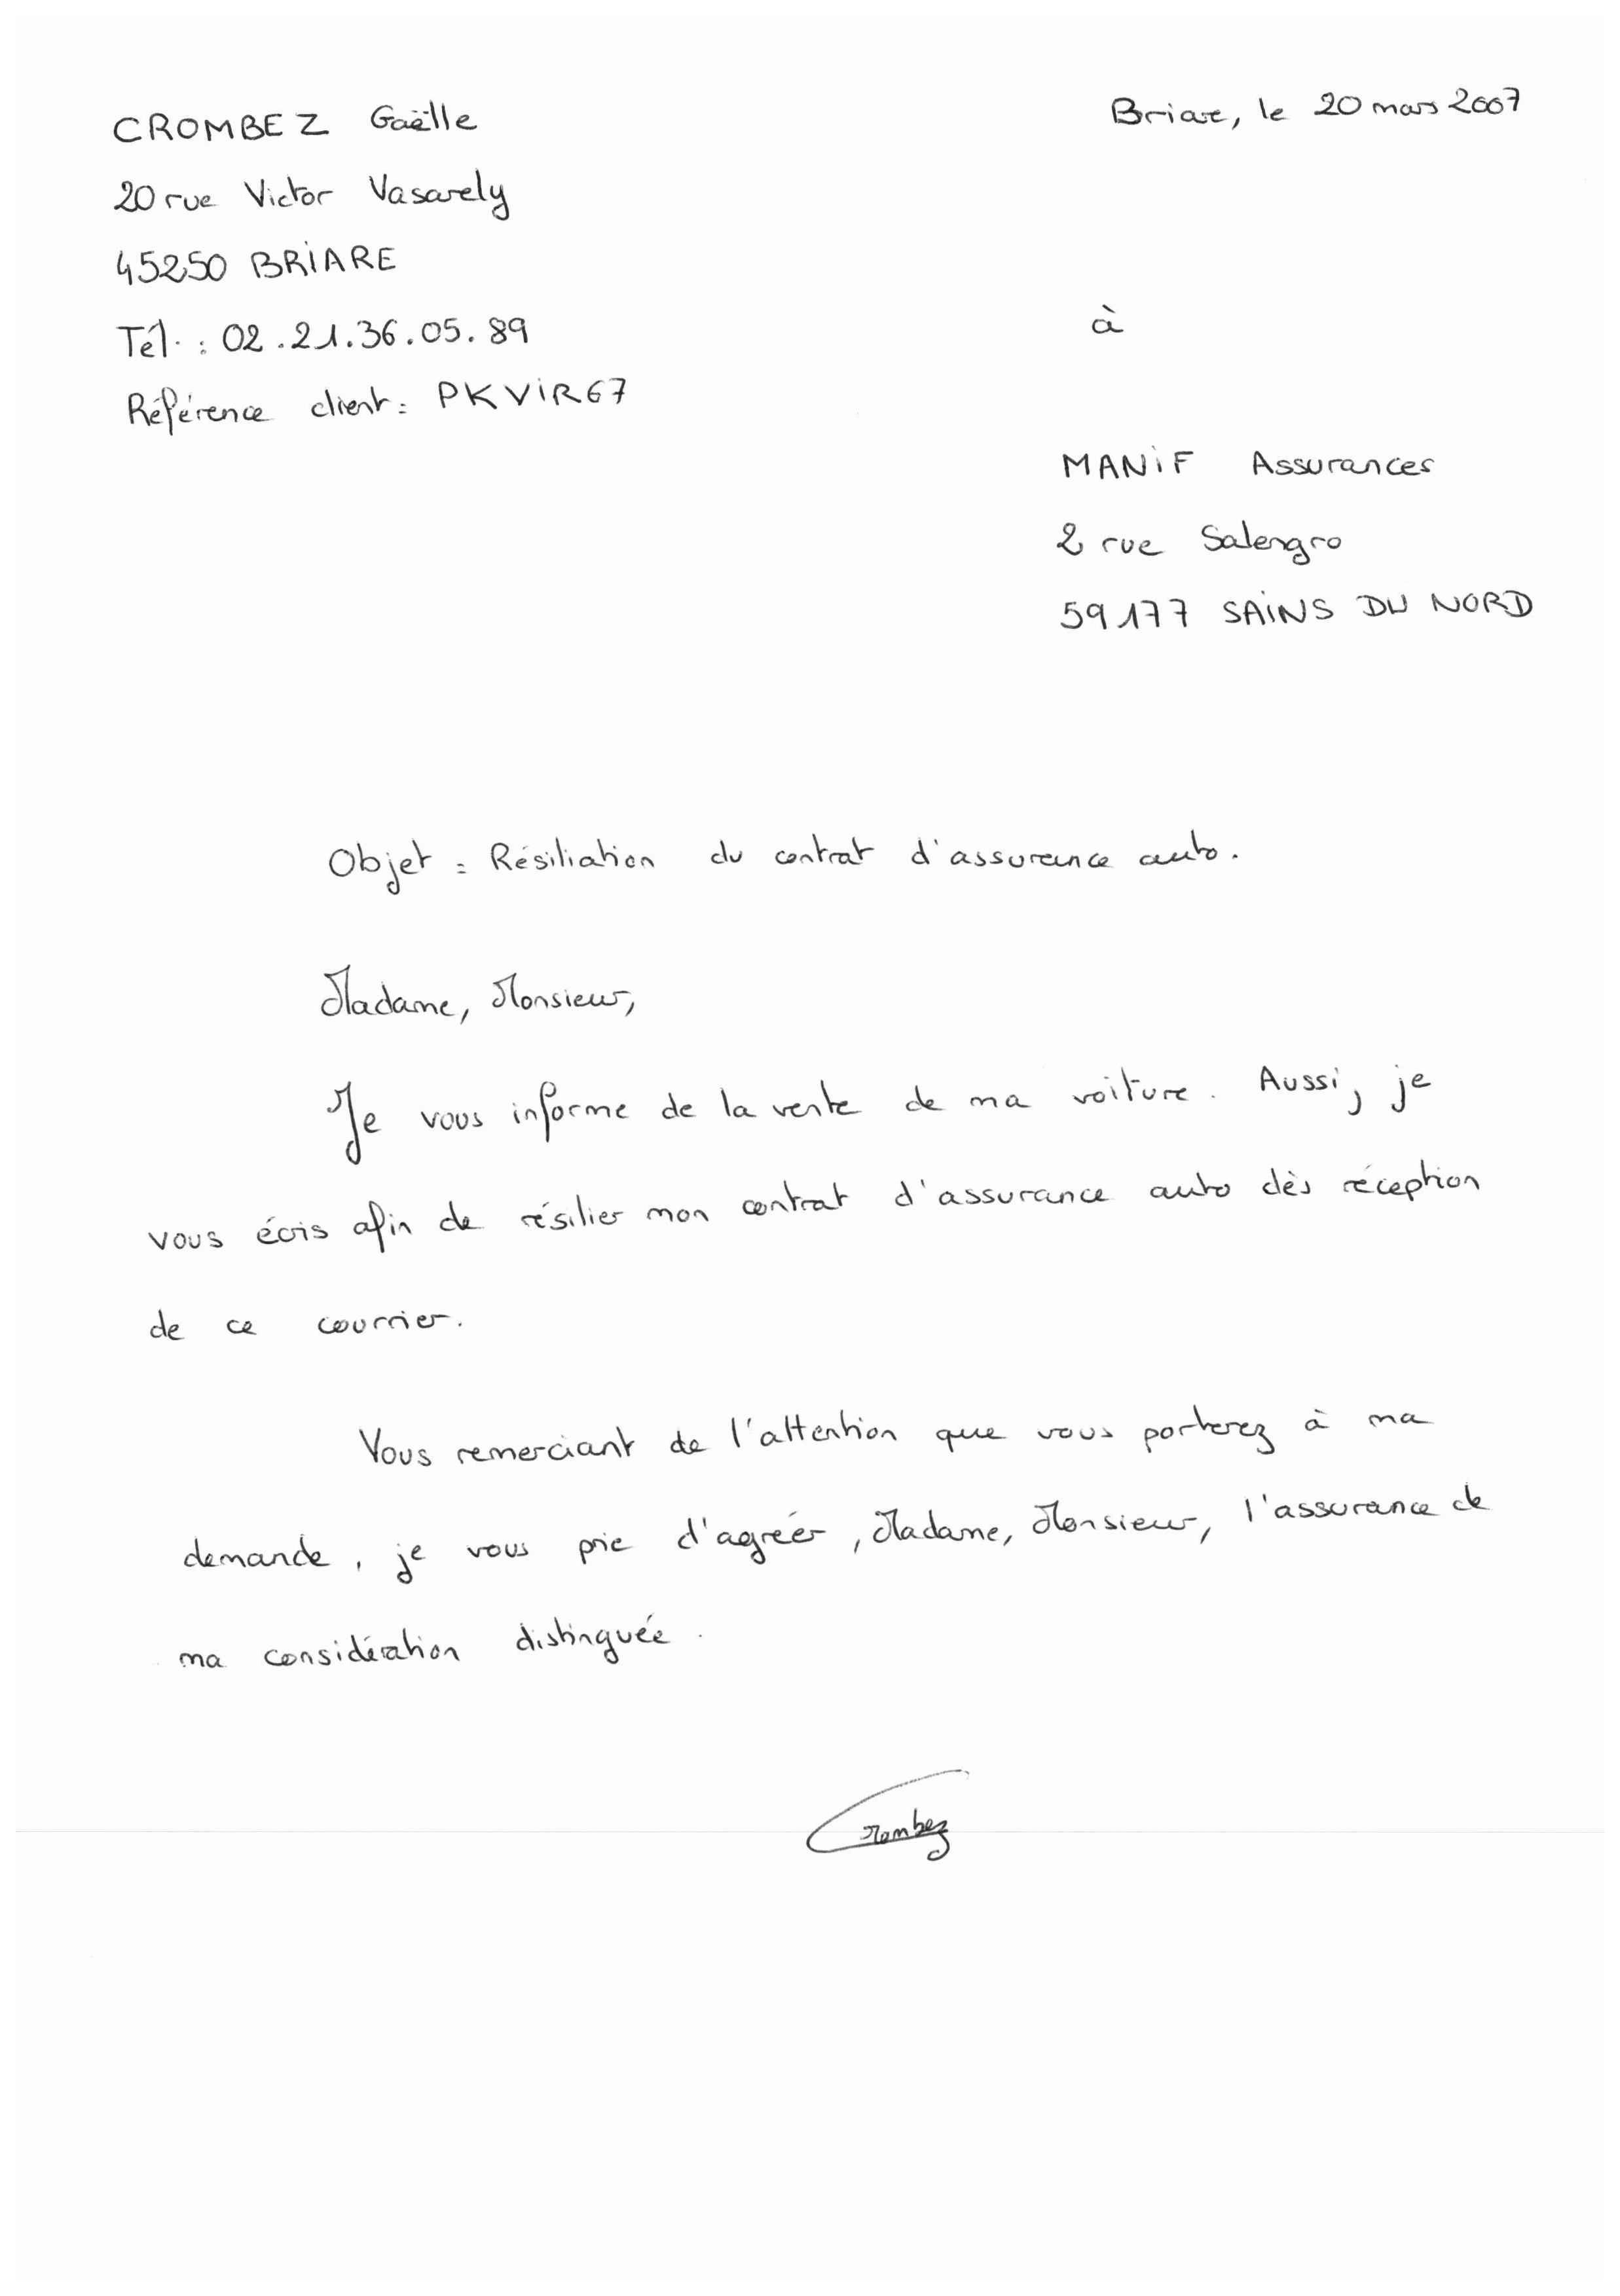 CROMBEZ Gaëlle
20 rue Victor Vasarely
45250 BRIARE
Tél. : 02.21.36.05.89
Référence client : PKVIR67
Briare, le 20 mars 2007
à
MANIF Assurances
2 rue Salengro
59177 SAINS DU NORD
Objet : Résiliation du contrat d'assurance auto.
Madame, Monsieur,
Je vous informe de la vente de ma voiture. Aussi, je
vous écris afin de résilier mon contrat d'assurance auto dès réception
de ce courrier.
Vous remerciant de l'attention que vous porterez à ma
demande, je vous prie d'agréer, Madame, Monsieur, l'assurance de
ma considération distinguée.
Crombez